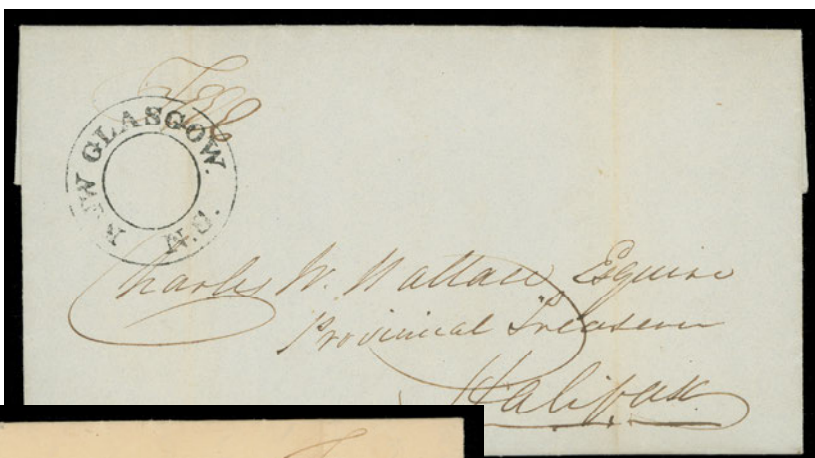 NEW GLASGOW.
N.S.
Charles W. Wallace Esquire
Provincial Treasurer
Halifax